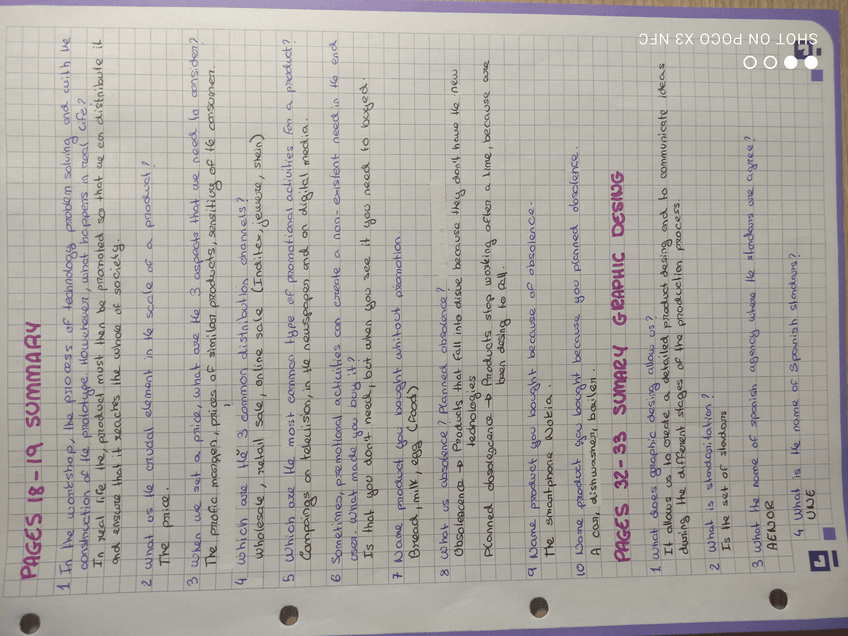 PAGES 18-19 SUMMARY
1 In the workshop, the process of technology problem solving end with the
construction of the prototype. Howerver, what happens in real life?
In real life the, product must then be promoted so that we can distribute it
and ensure that it reaches the whole of society.
2 What us the crucial element in the scale of a product?
The price.
3 When we set a price, what are the 3 aspects that we need to consider?
The profic margen, prices of similar products, sensitivy of the consumer.
4 Which are the 3 common distribution channels?
Wholesale, retail sale, online sale (Inditex, jewere, shein)
5 Which are the most common type of promotional activities for a product?
Campaings on television, in the newspaper and on digital media.
6 Sometimes, promotional activities can create a non-existent need in the end
user. What made you buy it?
Is that you don't need, but when you see it you need to buyed.
7 Name product you bought whitout promotion.
Bread, milk, egg (food)
8 What us obsolence? Planned obsolence?
Obsolescence → Products that fall into disue because they don't have the new
technologies
Planned obsolescence → Products stop working after a time, because are
been desing to fall.
9 Name product you bought because of obsolence.
The smartphone Nokia.
10 Name product you bought because you planned obsolence.
A car, dishwasher, boiler.
PAGES 32-33 SUMARY GRAPHIC DESING
1 What does graphic desing allow us?
It allows us to create a detailed product desing and to communicate ideas
during the different stages of the production process
2 What is standaritation?
Is the set of standars
3 What the name of spanish agency where the standars are agree?
AENOR
4 What is the name of Spanish standars?
UNE
SHOT ON POCO X3 NFC